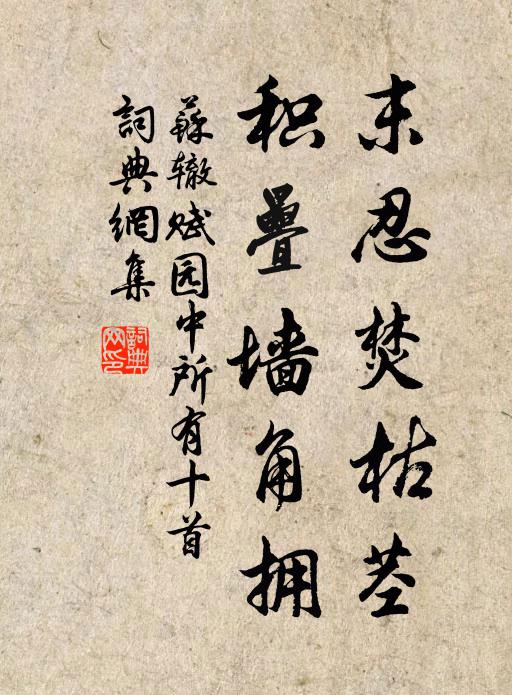 未忍焚枯茎
积疊墙角拥
蘇辙赋园中所有十首
詞典網集
詞典网印